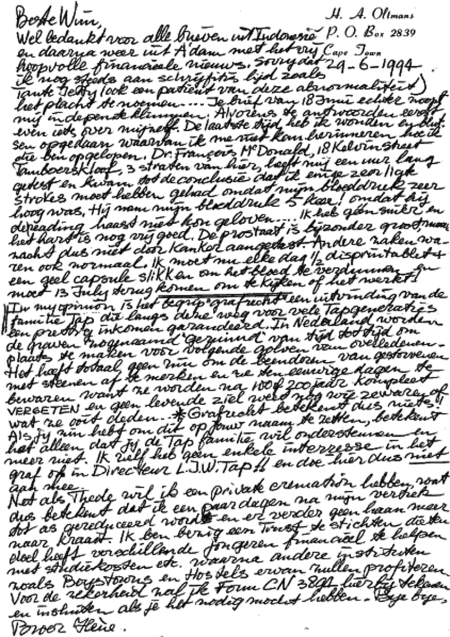 Beste Wim,
H. A. Oltmans
Wel bedankt voor alle brieven uit Indonesië
P. O. Box 2839
en daarna weer uit A'dam met het vrij
Cape Town
hoopvolle financieele nieuws. Sorry dat
29-6-1994
ik nog steeds aan schrijfitis lijd zoals
tante Jetty (ook een patient van deze abnormaliteit)
het placht te noemen.... Je brief van 18 Juni echter noopt
mij in de pen te klimmen. Alvorens te antwoorden eerst
even iets over mijzelf. De laatste tijd heb ik wonden en
sen opgedaan waarvan ik me niet kan herinneren hoe ik
die ben opgelopen. Dr. François McDonald, 18 Kelvin Street
Tamboerskloof, 3 straten van hier, heeft mij een uur lang
getest en kwam tot de conclusie dat ik enige zeer lichte
strokes moet hebben gehad omdat mijn bloeddruk zeer
hoog was. Hij nam mijn bloeddruk 5 keer! omdat hij
de reading haast niet kon geloven.... Ik heb geen suiker en
het hart is nog vrij goed. De prostaat is bijzonder groot, maar
nacht dus niet door kanker aangetast. Andere zaken wa-
ren ook normaal. Ik moet nu elke dag ½ disprintablet +
een geel capsule slikken om het bloed te verdunnen en
moet 13 July terug komen om te kijken of het werkt!
In my opinion is het begrip grafrecht een uitvinding van de
familie Tap die langs deze weg voor vele Tapgeneraties
een prettig inkomen garandeerd. In Nederland worden
de graven zogenaamd geruimd van tijd tot tijd om
plaats te maken voor volgende golven van overledenen.
Het heeft totaal geen zin om de beenderen van gestorvenen
met steenen af te merken en ze ten eeuwige dagen te
bewaren want ze worden na 100 of 200 jaar kompleet
VERGETEN en geen levende ziel weet nog wie ze waren of
wat ze ooit deden. * Grafrecht betekent dus niets!!
Als jij zin hebt om dit op jouw naam te zetten, betekent
het alleen dat jij de Tap familie wil ondersteunen en
meer niet. Ik zelf heb geen enkele interesse in het
graf of in Directeur L.J.W. Tap!! en doe hier dus niet
aan mee.
Net als Thede wil ik een private cremation hebben, wat
dus betekent dat ik een paar dagen na mijn vertrek
tot as gereduceerd word en er verder geen haan meer
naar kraait. Ik ben bezig een Trust te stichten die ten
doel heeft verschillende jongeren financieel te helpen
met studiekosten etc. waarna andere instituten
zoals Boystowns en Hostels ervan zullen profiteren
Voor de zekerheid zal ik Form CN 3891 hierbij tekenen
en insluiten als je het nodig mocht hebben. Bye bye,
Broer Hène.